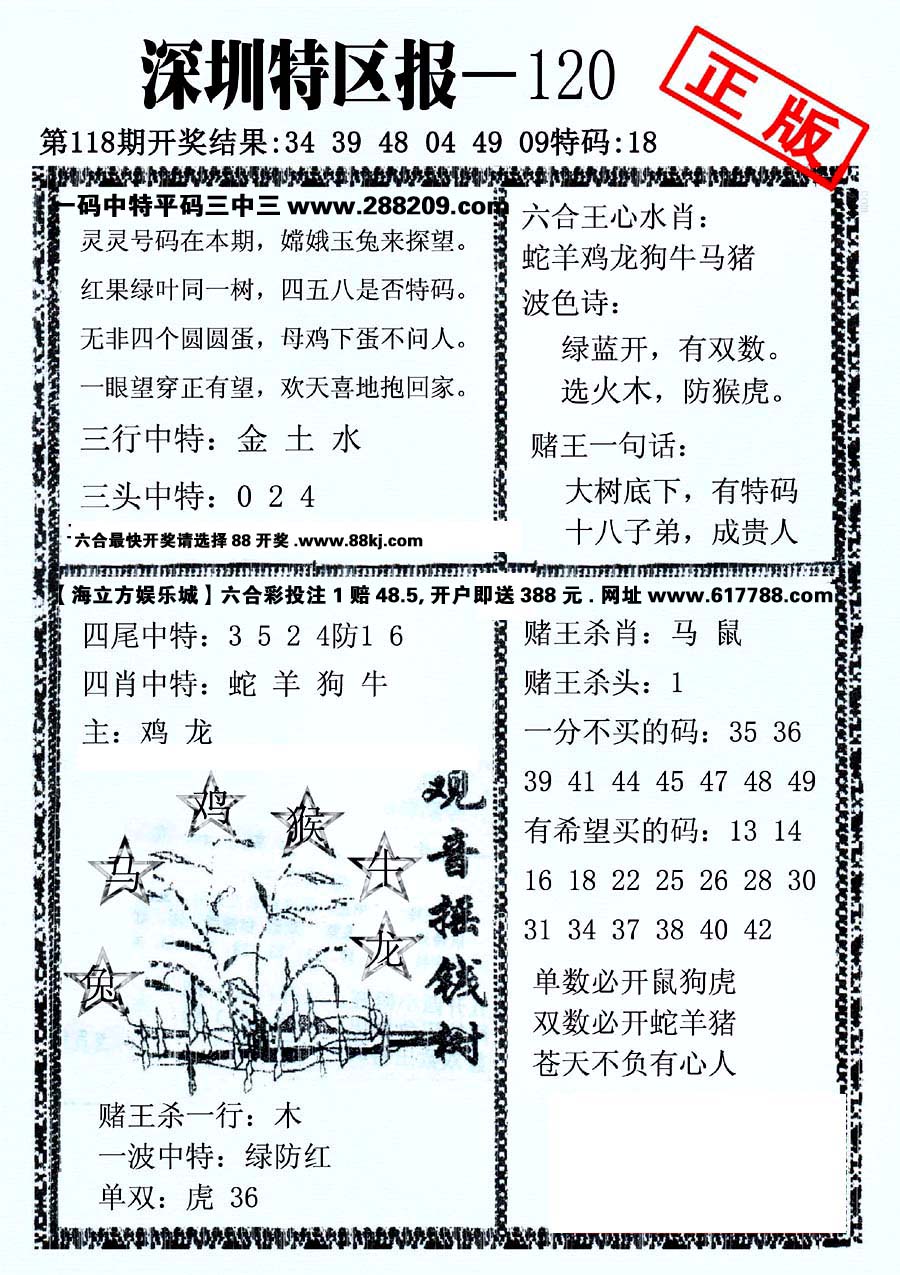 深圳特区报—120
正版
第118期开奖结果:34 39 48 04 49 09特码:18
一码中特平码三中三 www.288209.com
灵灵号码在本期，嫦娥玉兔来探望。
红果绿叶同一树，四五八是否特码。
无非四个圆圆蛋，母鸡下蛋不问人。
一眼望穿正有望，欢天喜地抱回家。
三行中特：金 土 水
三头中特：0 2 4
六合最快开奖请选择 88 开奖 .www.88kj.com
六合王心水肖：
蛇羊鸡龙狗牛马猪
波色诗：
绿蓝开，有双数。
选火木，防猴虎。
赌王一句话：
大树底下，有特码
十八子弟，成贵人
【海立方娱乐城】六合彩投注 1 赔 48.5, 开户即送 388 元 . 网址 www.617788.com
四尾中特：3 5 2 4防1 6
四肖中特：蛇 羊 狗 牛
主：鸡 龙
鸡
猴
马
牛
龙
兔
观音摇钱树
赌王杀一行：木
一波中特：绿防红
单双：虎 36
赌王杀肖：马 鼠
赌王杀头：1
一分不买的码：35 36
39 41 44 45 47 48 49
有希望买的码：13 14
16 18 22 25 26 28 30
31 34 37 38 40 42
单数必开鼠狗虎
双数必开蛇羊猪
苍天不负有心人